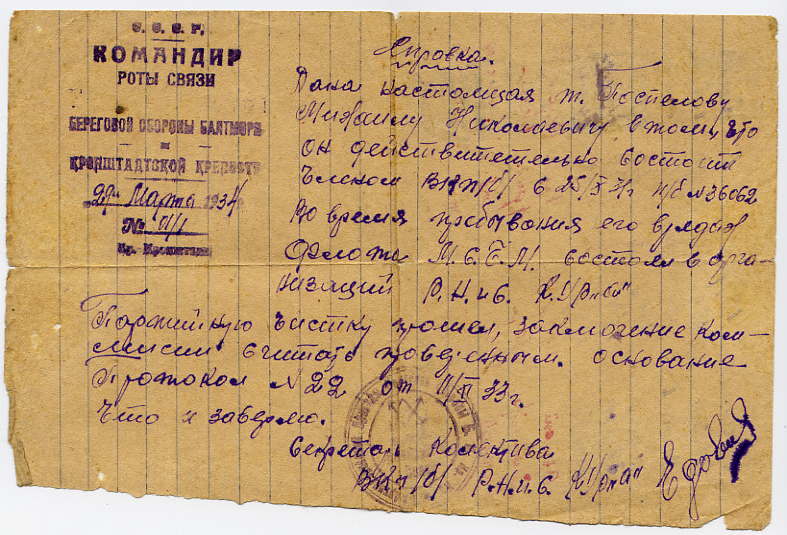 С. С. С. Р.
КОМАНДИР
РОТЫ СВЯЗИ
БЕРЕГОВОЙ ОБОРОНЫ БАЛТМОРЯ
и
КРОНШТАДТСКОЙ КРЕПОСТИ
"29" Марта 1934
№ VI/1
Кр. Кронштадт
Справка.
Дана настоящая т. Поспелову
Михаилу Николаевичу в том, что
он действительно состоит
Членом ВКП/б/ с 25/X 31г п/б №36062
Во время пребывания его в рядах
флота М.С.Б.М. состоял в орга-
низации Р.Н. и С.
Партийную чистку прошел, заключение ком-
миссии считать проверенным. основание
Протокол №22 от 11/XI 33г.
Что и заверяю.
Секретарь Колектива
ВКП/б/ Р.Н. и С.